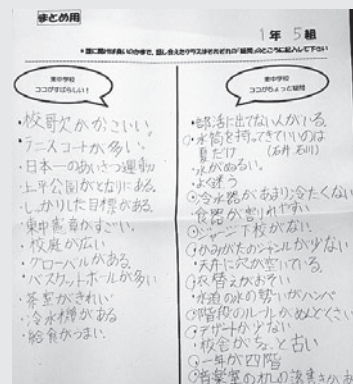 まとめ用
1年 5組
東中学校
ココがすばらしい!
・校歌がかっこいい
・テニスコートが多い。
・日本一のあいさつ運動
・上平公園がとなりにある。
・しっかりした目標がある。
・東中憲章がすごい。
・校庭が広い
・グローバルがある。
・バスケットボールが多い
・茶室がきれい
・冷水機がある
・給食がうまい。
東中学校
ココがちょっと疑問
・部活に出てない人がいる。
○水筒を持ってきていいのは
夏だけ
・水がぬるい。
・よく迷う
○冷水器があまり冷たくない
・食器が割れやすい
○ジャージ下校がない。
○かみがたのジャンルが少ない
・天井に穴が空いている。
○衣替えがおそい
・水道の水の勢いがハンパ
○階段のルールがめんどくさい
○デザートが少ない
・校舎がちょっと古い
○一年が四階
○音楽室の机の落書きが